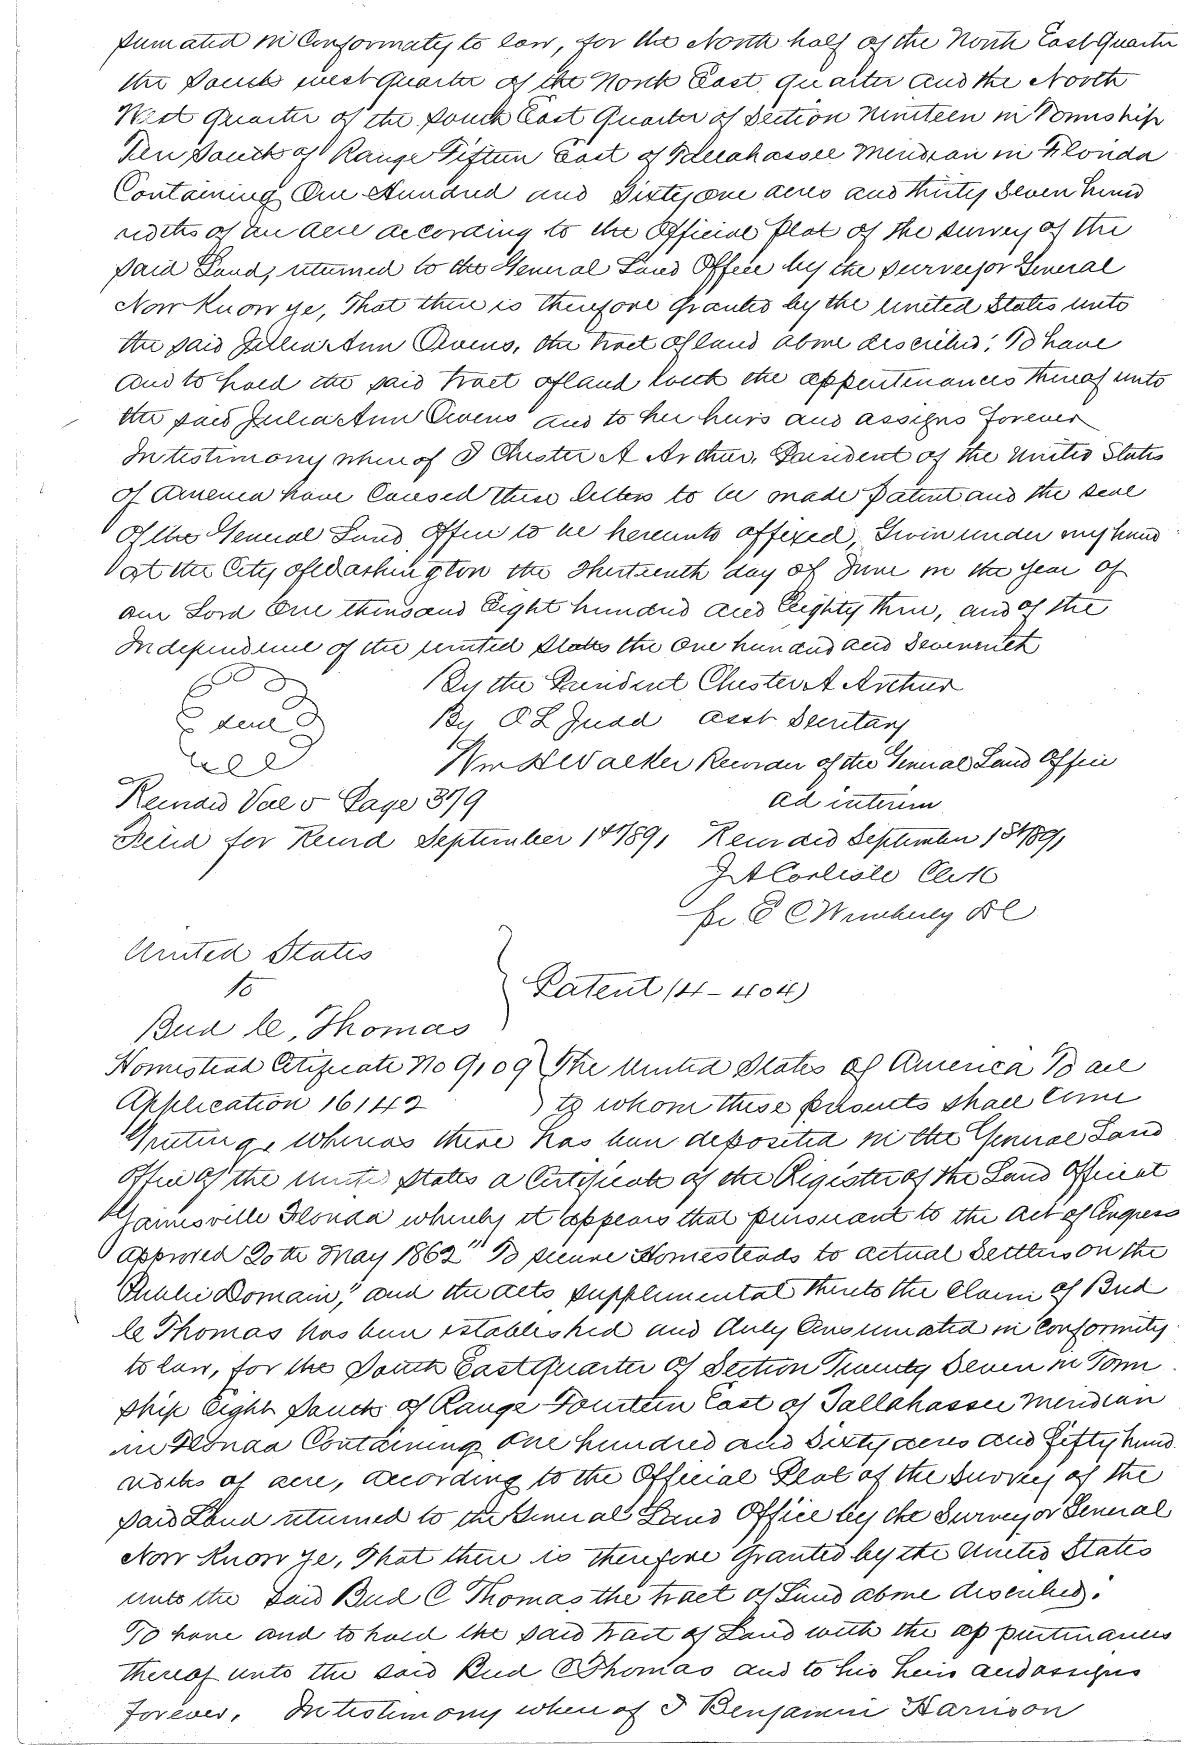 sumated in Conformaty to law, for the North half of the North East Quarter
the South west quarter of the North East quarter and the North
West quarter of the South East Quarter of Section Nineteen in Township
Ten South of Range Fifteen East of Tallahassee Meridian in Florida
Containing One Hundred and Sixty one acres and thirty seven hund
redths of an acre according to the Official Plat of the survey of the
said Land, returned to the General Land Office by the surveyor General
Now Know ye, That there is therefore granted by the United States unto
the said Julia Ann Owens, the tract of land above described; To have
and to hold the said tract of land with the appertenances thereof unto
the said Julia Ann Owens and to her heirs and assigns forever
In testimony where of I Chester A Arthur, President of the United States
of America have caused these letters to be made patent and the seal
of the General Land Office to be hereunto affixed, Given under my hand
at the City of Washington the thirteenth day of June in the year of
our Lord One thousand Eight hundred and Eighty three, and of the
Independence of the united States the one hundred and Seventh
By the President Chester A Arthur
seal By O L Judd asst Secretary
Wm H Walker Recorder of the General Land Office
Recorded Vol 5 Page 379 ad interim
Filed for Record September 1st 1891 Recorded September 1st 1891
J A Carlisle Clerk
per E C Wimberly DC
United States
to Patent (4-404)
Bud C. Thomas
Homestead Certificate No 9109 The United States of America To all
Application 16142 to whom these presents shall come
Greeting, whereas there has been deposited in the General Land
Office of the United States a Certificate of the Register of the Land Office at
Gainesville Florida whereby it appears that pursuant to the Act of Congress
approved 20th May 1862 "To secure Homesteads to actual Settlers on the
Public Domain," and the acts supplemental thereto the claim of Bud
C Thomas has been established and duly Consumated in Conformity
to law, for the South East quarter of Section Twenty Seven in Town
ship Eight South of Range Fourteen East of Tallahassee Meridian
in Florida Containing one hundred and sixty acres and fifty hund
redths of acre, according to the Official Plat of the Survey of the
said Land returned to the General Land Office by the Surveyor General
Now Know Ye, That there is therefore granted by the United States
unto the said Bud C Thomas the tract of Land above described.
To have and to hold the said tract of Land with the appertenances
thereof unto the said Bud C Thomas and to his heirs and assigns
forever. In testimony where of I Benjamin Harrison